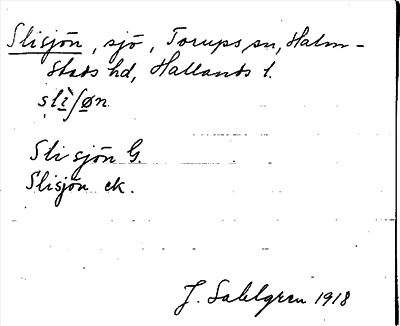 Slisjön, sjö, Torups sn, Halm-
stads hd, Hallands l.
slì̱ʃø̱n
Sli sjön G.
Slisjön ek.
J. Sahlgren 1918